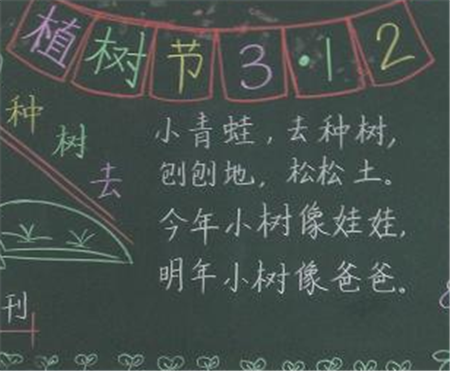 植树节3·12
种树去
小青蛙，去种树，
刨刨地，松松土。
今年小树像娃娃，
明年小树像爸爸。
刊